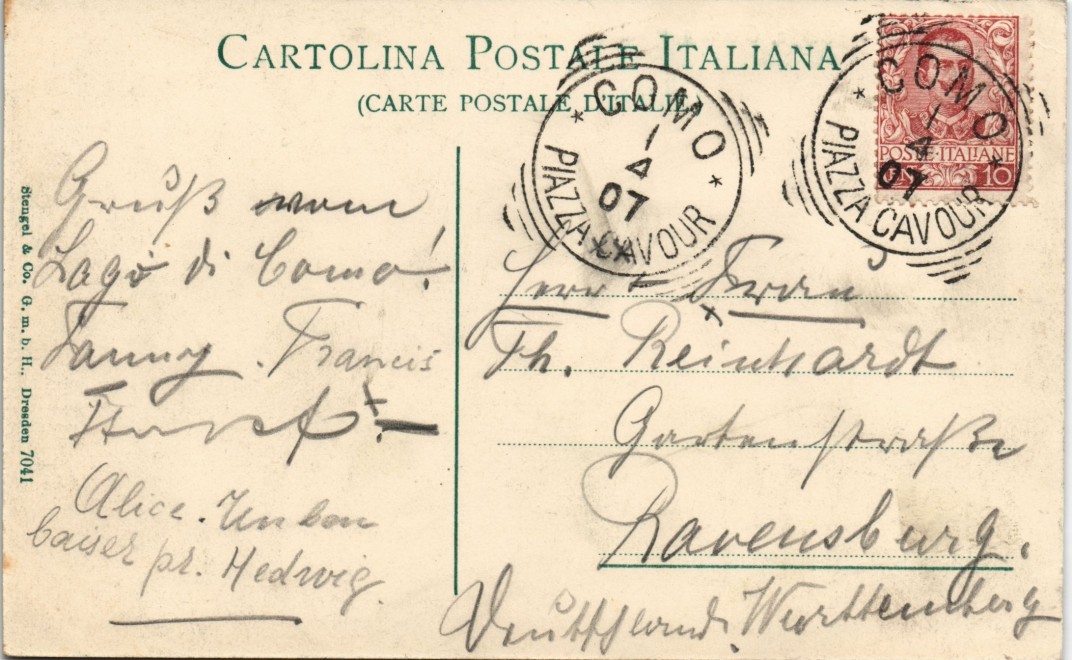 CARTOLINA POSTALE ITALIANA
(CARTE POSTALE D'ITALIE)
COMO
1
4
07
PIAZZA CAVOUR
COMO
1
4
07
PIAZZA CAVOUR
POSTE·ITALIANE
10
Gruß vom
Lago di Como!
Fanny. Francis
Alice. Un bon
baiser pr. Hedwig.
Stengel & Co. G. m. b. H., Dresden 7041
Herr
Th. Reinhardt
Gartenstraße
Ravensburg.
Deutschland. Württemberg